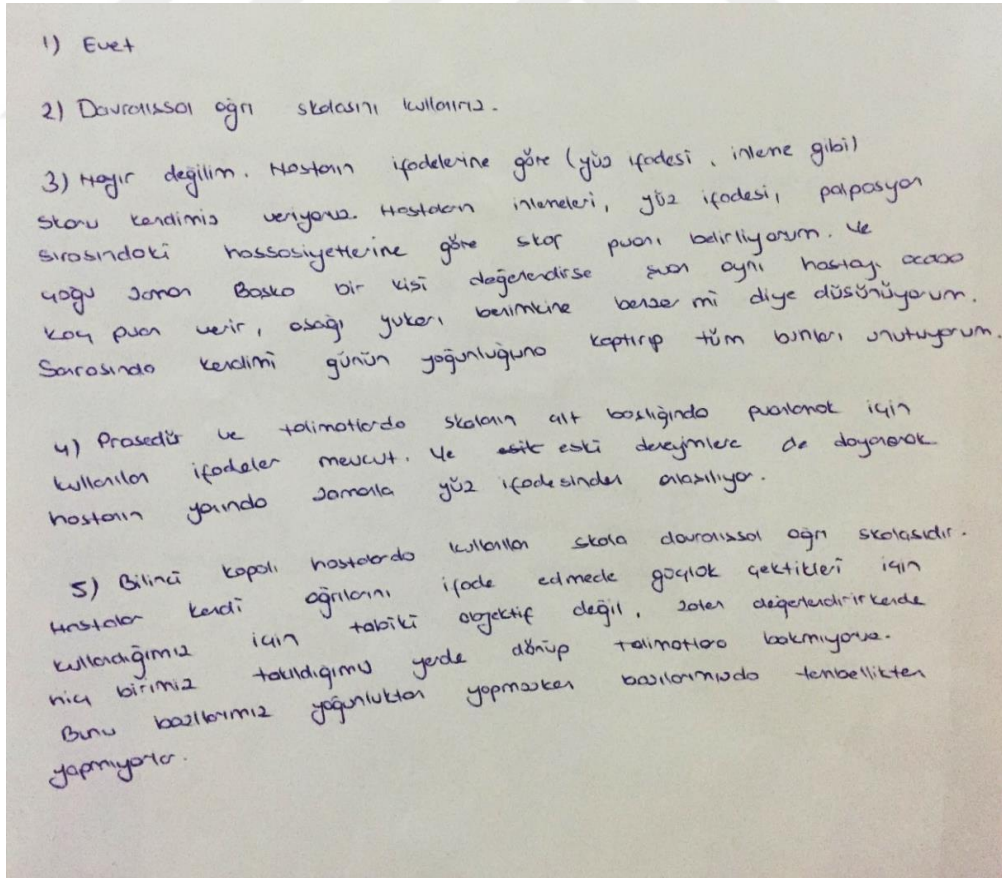 1) Evet
2) Davranıssal ağrı skalasını kullanırız.
3) Hayır değilim. Hastanın ifadelerine göre (yüz ifadesi, inleme gibi)
skoru kendimiz veriyoruz. Hastaların inlemeleri, yüz ifadesi, palpasyon
sırasındaki hassasiyetlerine göre skor puanı belirliyorum. Ve
çoğu zaman Başka bir kişi değerlendirse şuan aynı hastayı acaba
kaç puan verir, aşağı yukarı benimkine benzer mi diye düşünüyorum.
Sonrasında kendimi günün yoğunluğuna kaptırıp tüm bunları unutuyorum.
4) Prosedür ve talimatlarda skalanın alt başlığında puanlamak için
kullanılan ifadeler mevcut. Ve eski deneyimlere de dayanarak
hastanın yanında zamanla yüz ifadesinden anlaşılıyor.
5) Bilinci kapalı hastalarda kullanılan skala davranıssal ağrı skalasıdır.
Hastalar kendi ağrılarını ifade edmede güçlük çektikleri için
kullandığımız için tabiki objektif değil, zaten değerlendirirkende
hiç birimiz takıldığımız yerde dönüp talimatlara bakmıyoruz.
Bunu bazılarımız yoğunluktan yapmazken bazılarımızda tembellikten
yapmıyorlar.